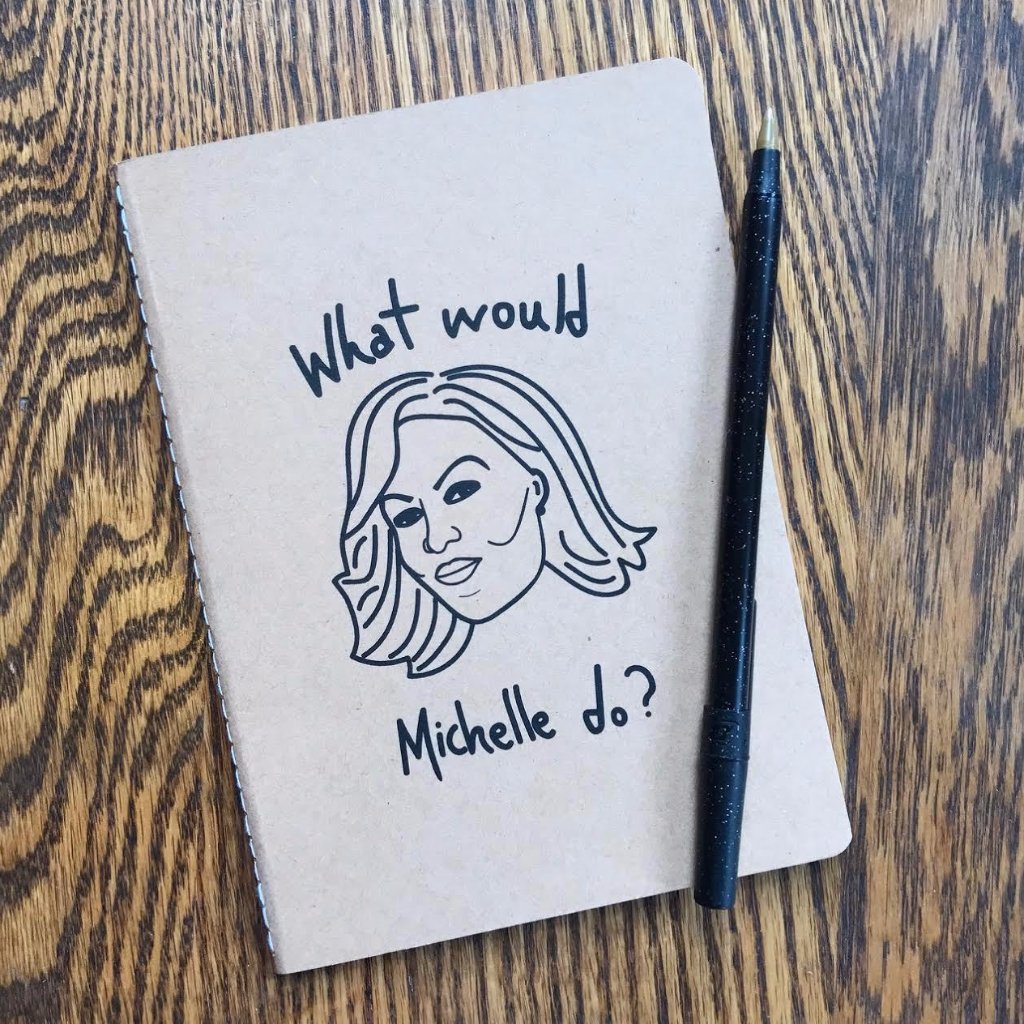 What would
Michelle do?